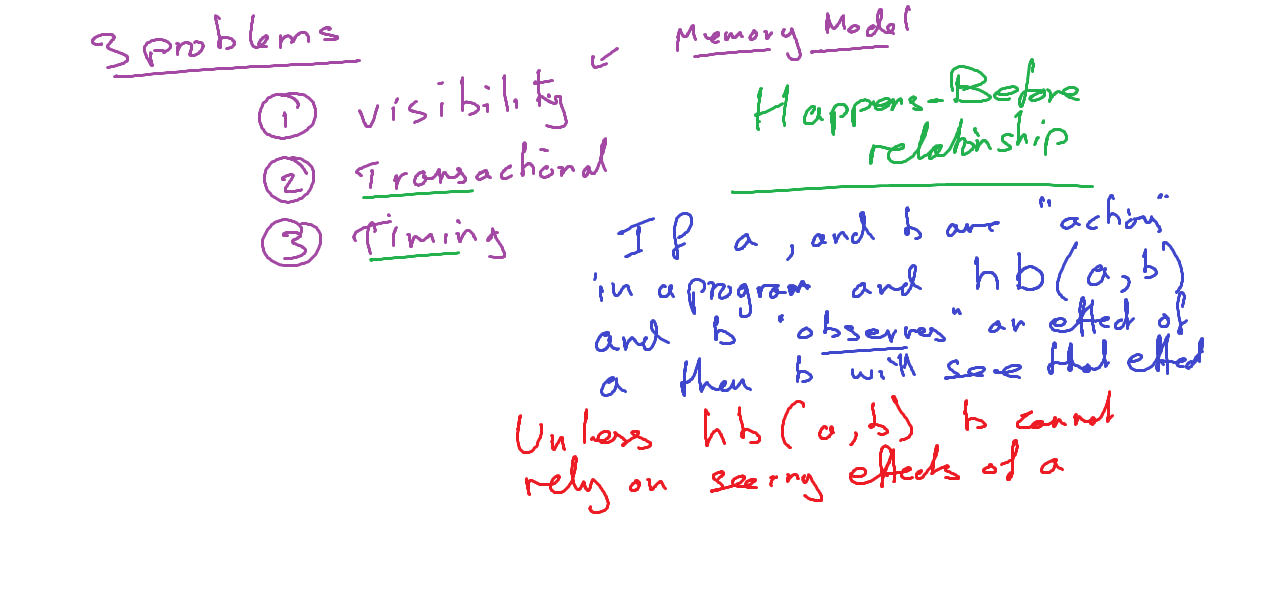 3 problems
1 visibility
2 Transactional
3 Timing
Memory Model
Happens-Before
relationship
If a, and b are "actions"
in a program and hb(a,b)
and b "observes" an effect of
a then b will see that effect
Unless hb(a,b) b cannot
rely on seeing effects of a